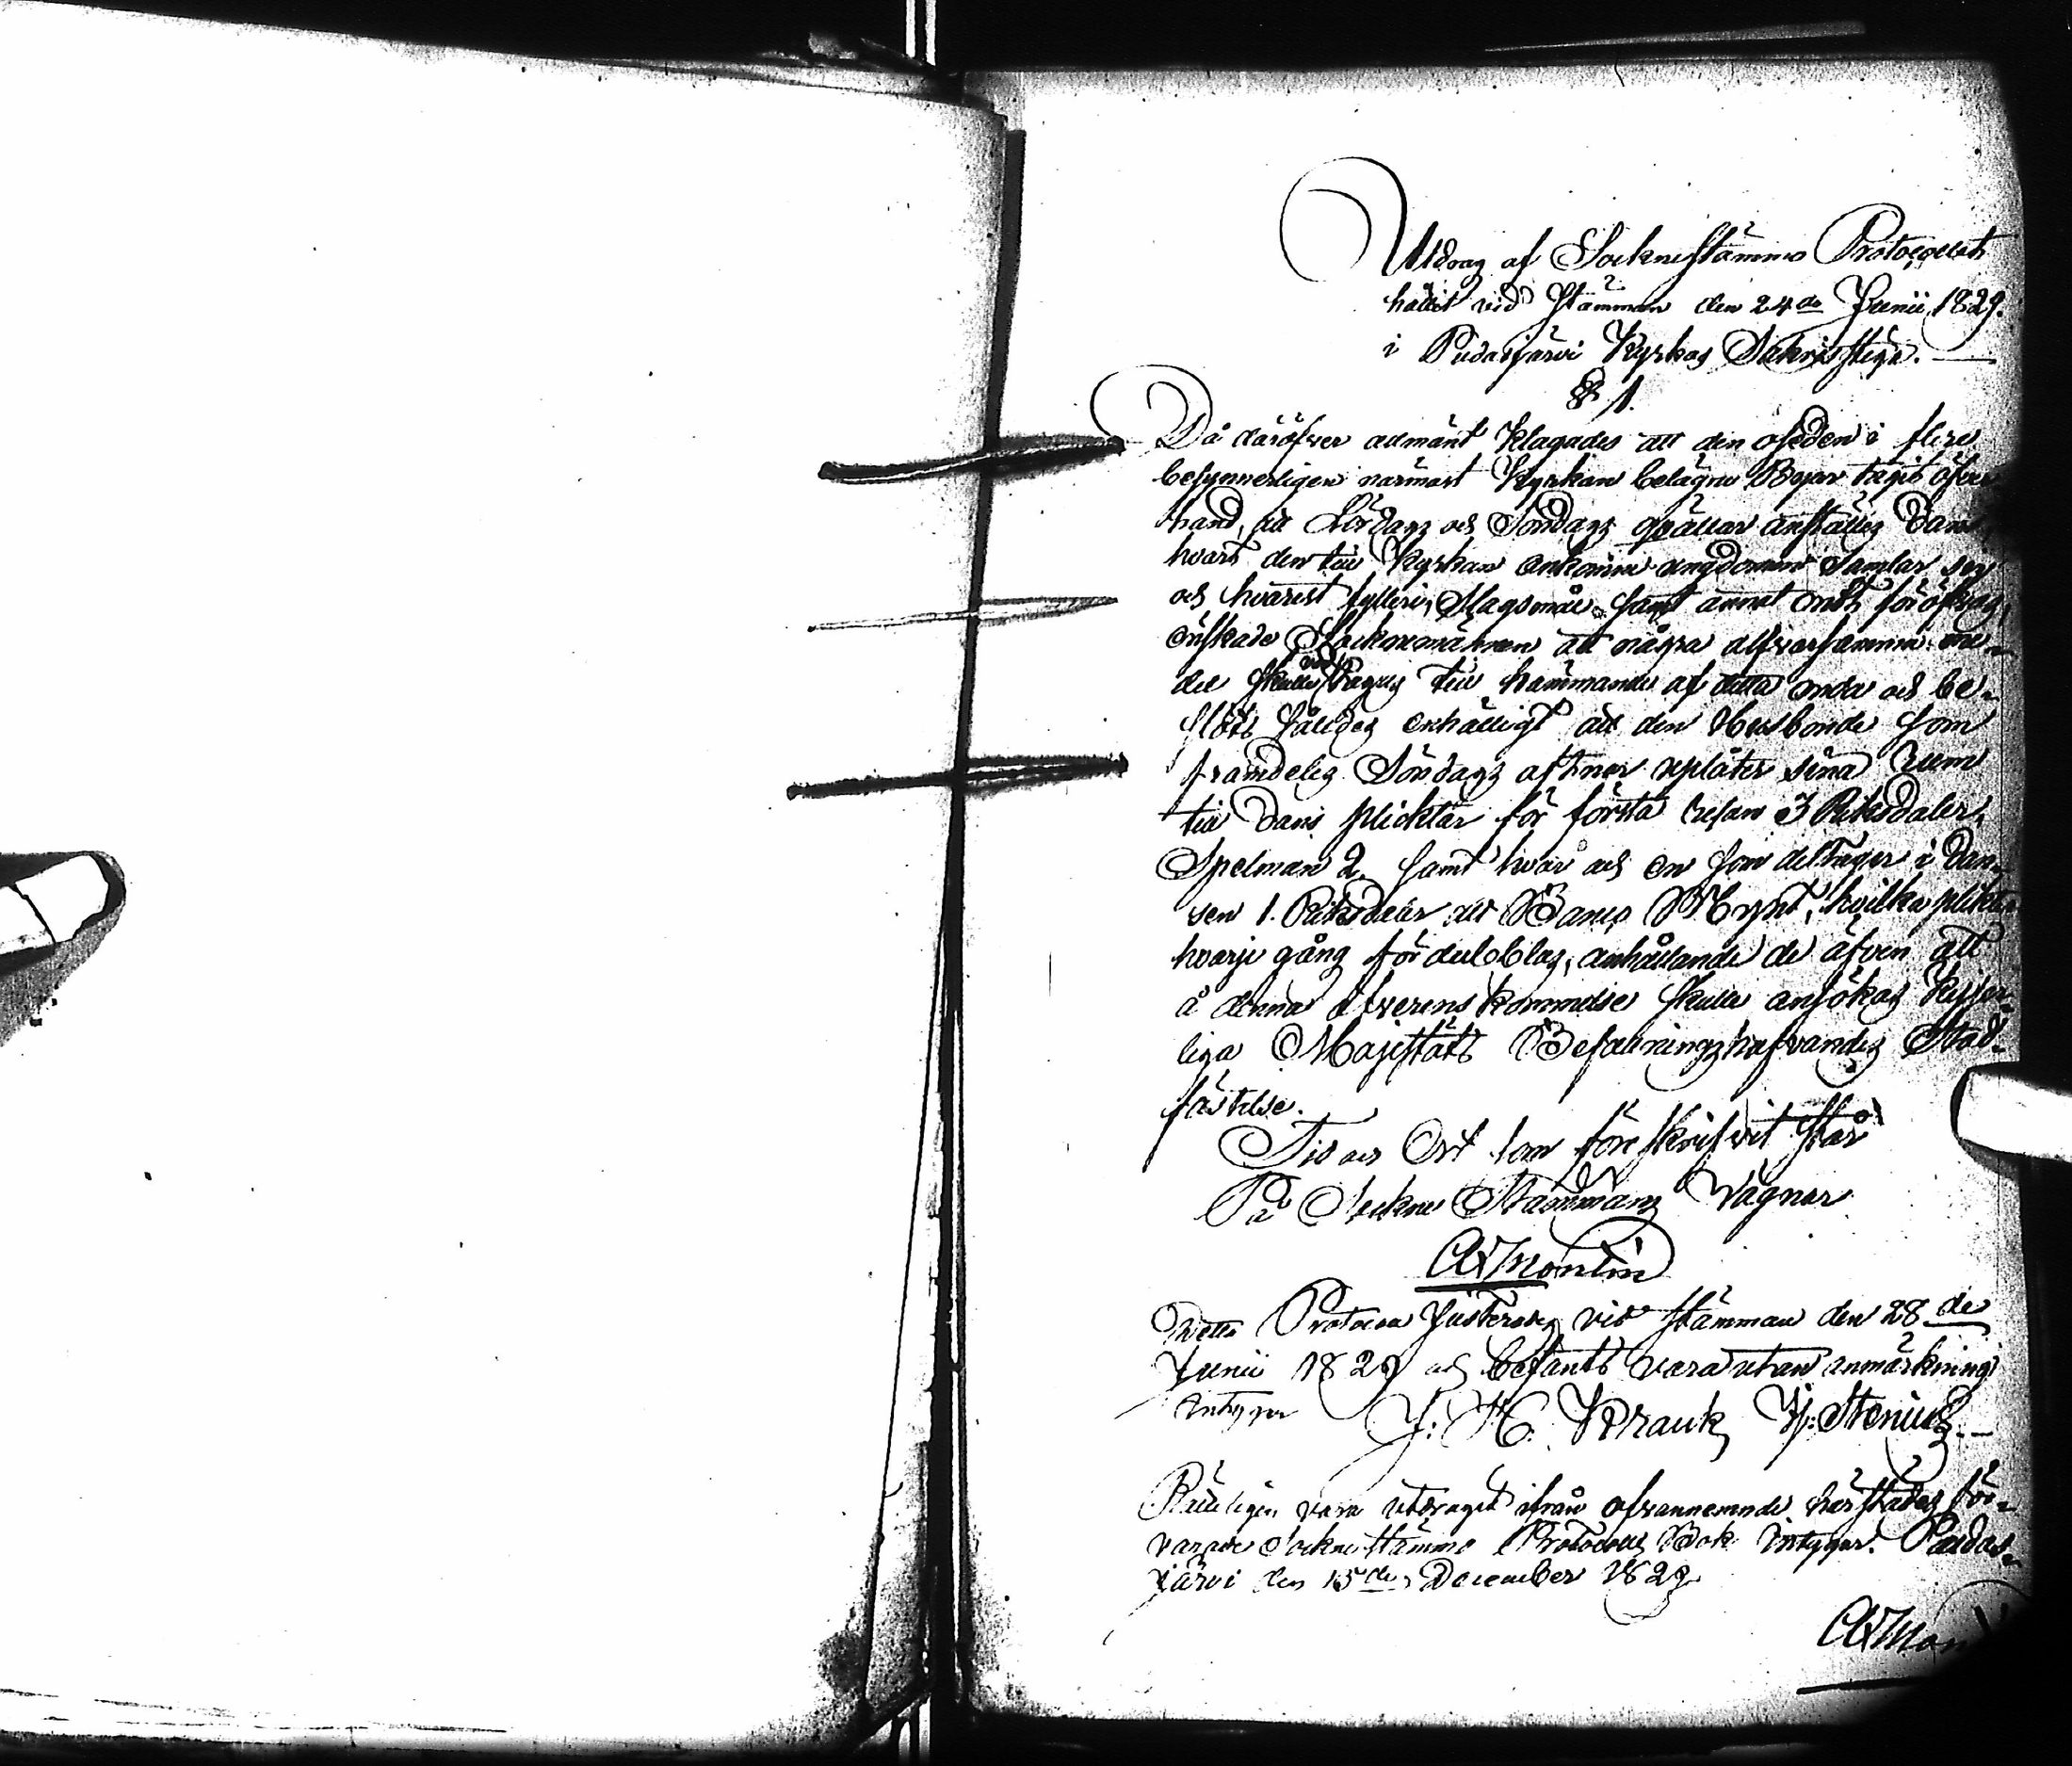 Utdrag af Sockne stämmo Protocollet
hållit vid Stämman den 24de Junii 1829.
i Pudasjärvi Kyrkas Sakristiga.
§ 1.
Då daröfver allmänt klagades att den oseden i flere
besynnerligen närmast Kyrkan belägne Byar tagit öfver
hand, att Lördags och Söndags qvällar anställes Dans,
hvart den till Kyrkan ankomne ungdomen samlar sig
och hvarest fylleri, Slagsmål samt annat ondt föröfvas,
önskade Socknemännen att några alfversamma me-
del skulle vidtagas till hämmande af detta onda och be-
slöts således enhälligt att den Husbonde som
framdeles Söndags aftnar uplåter sina rum
till Dans pliktar för första resan 3 Riksdaler,
Spelman 2. samt hvar och en som deltager i Dan-
sen 1. Riksdaler allt Banco Mynt, hvilka plikter
hvarje gång fördubblas, anhållande de äfven att
å denna öfverenskommelse skulle ansökas Kejser-
liga Majestäts Befallningshafvandes Stad-
fästelse.
Tid och Ort som föreskrifvit står
På Sockne Stämmans vägnar
Montin
Detta Protocoll Justerades vid stämman den 28de
Junii 1829 och befants vara utan anmärkning
intygar J: H. Krank, Hj: Stenius.
Rätteligen vara utdraget ifrån ofvannemnde härstädes för-
varade Sockne stämmo Protocolls Bok intygar. Pudas-
järvi den 15de December 1829